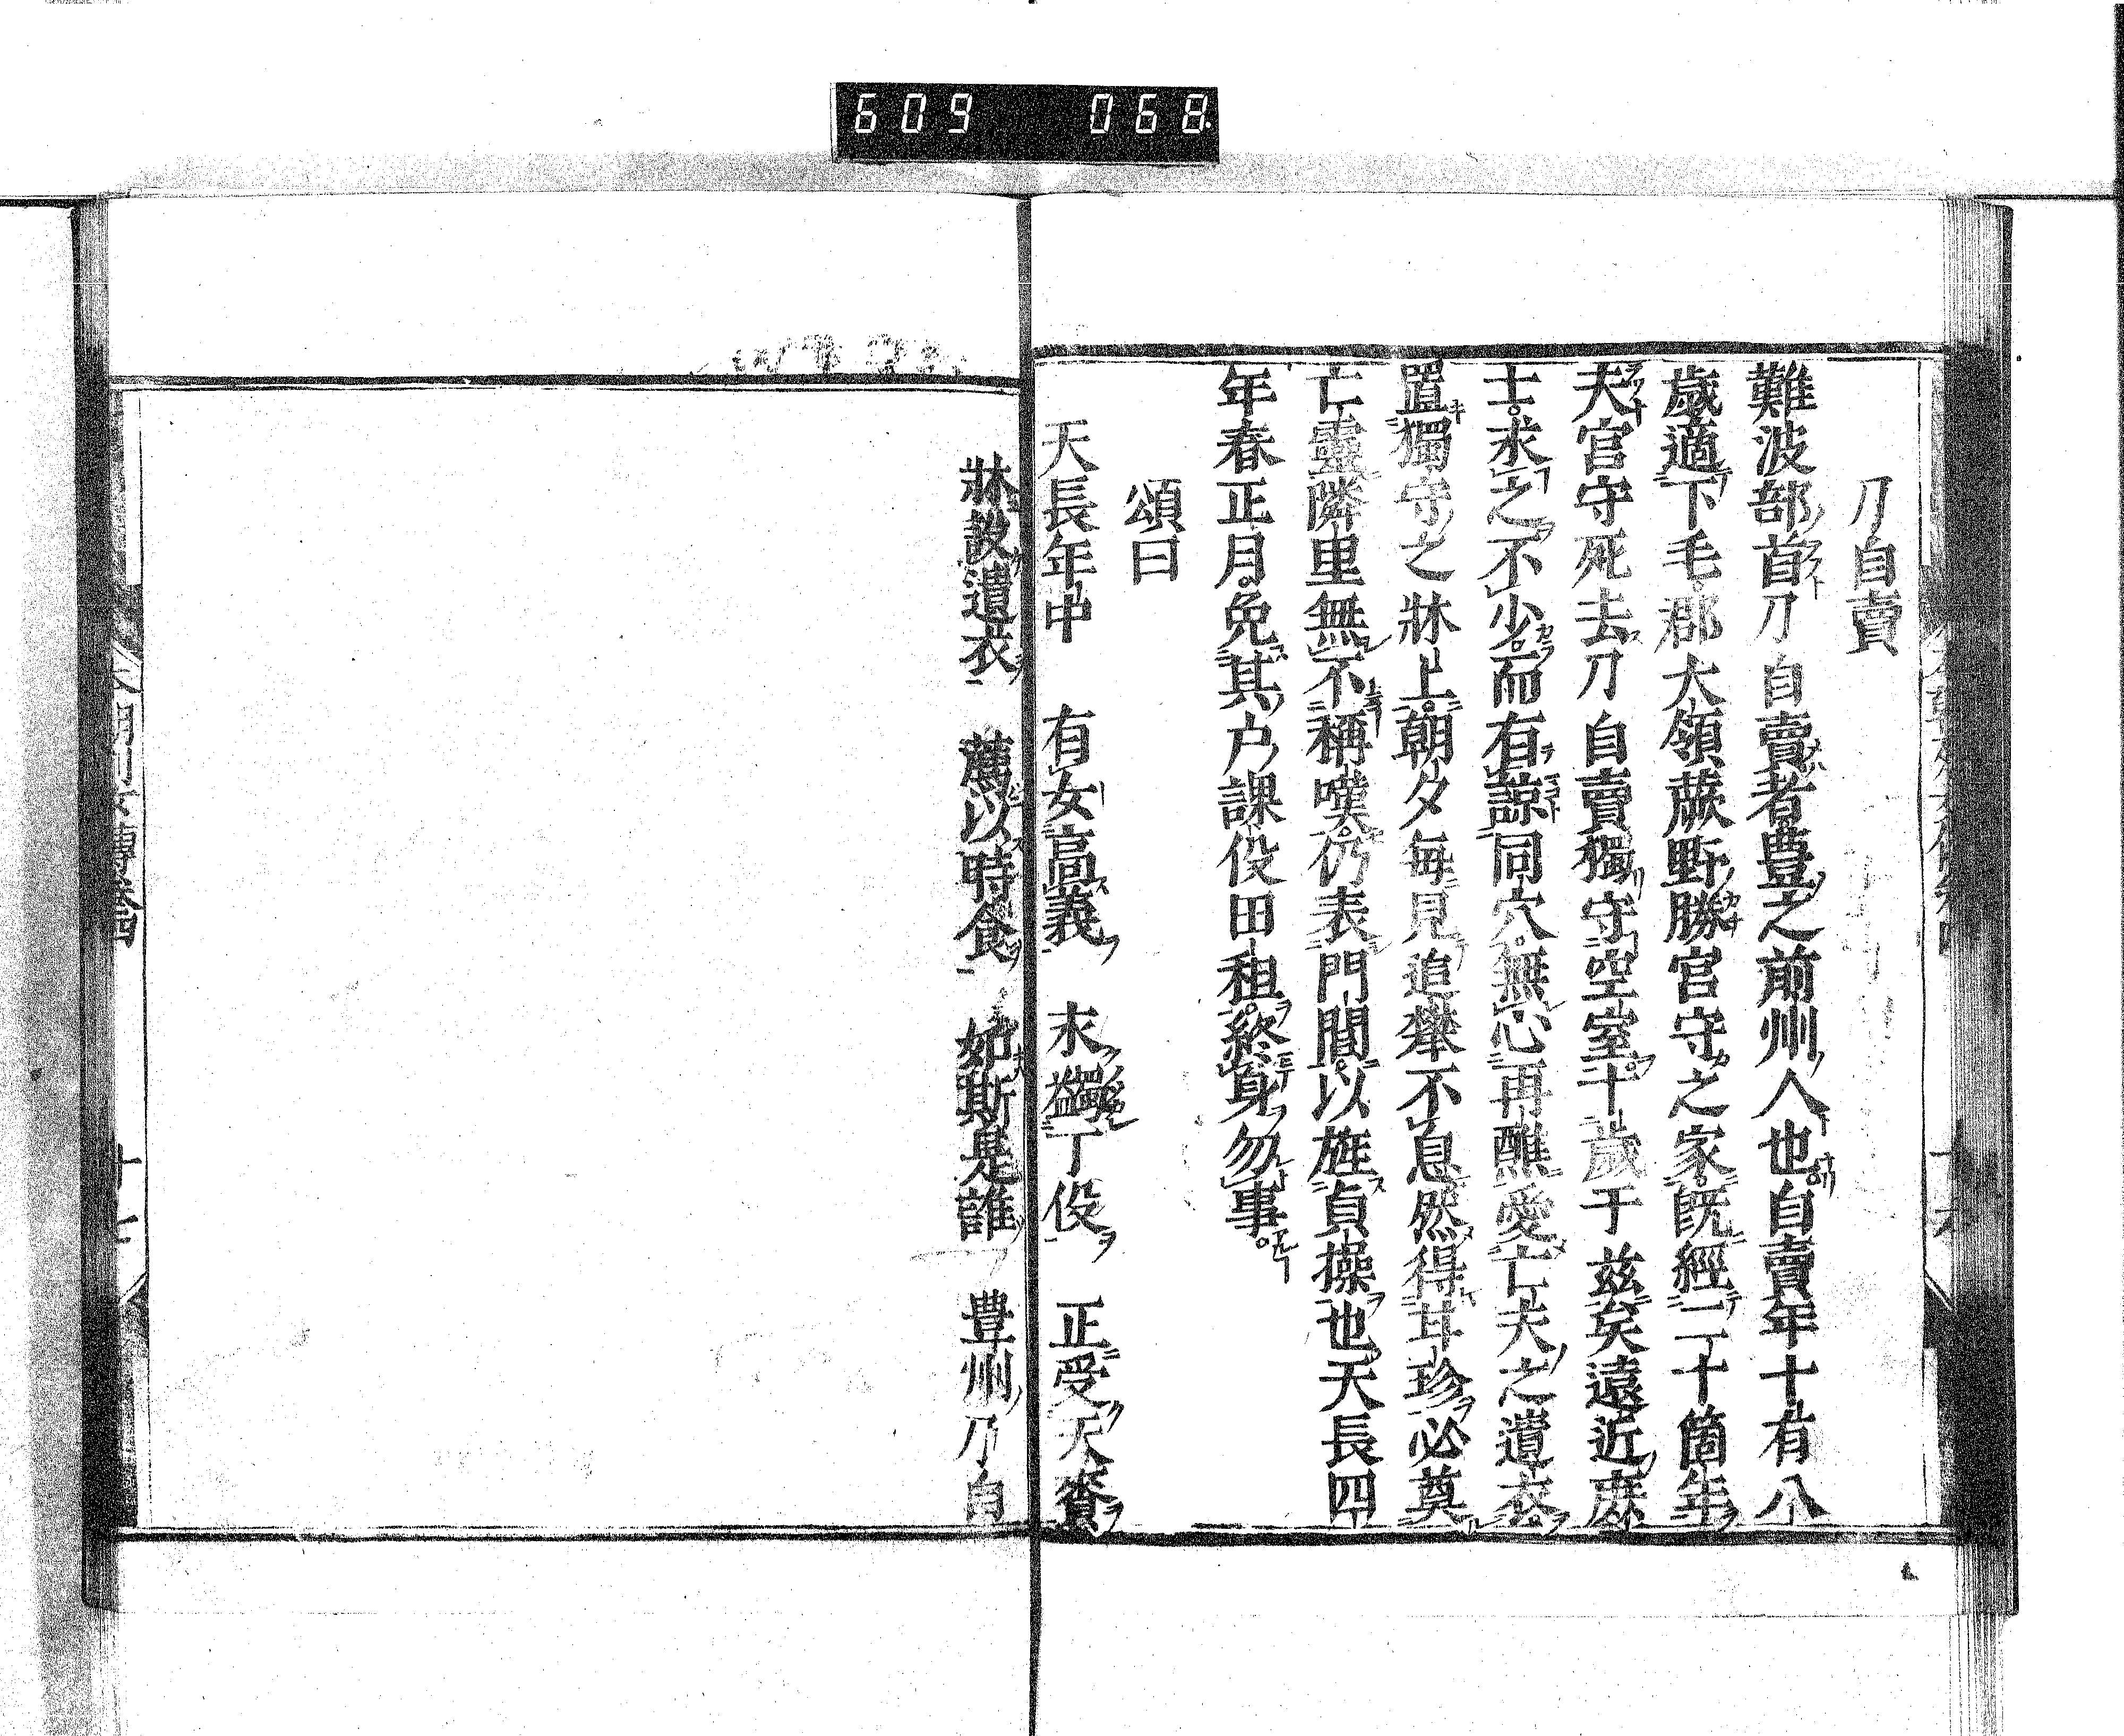 刀自賣
難波部首刀自賣者豊之前州人也自賣年十有八
歲適下毛郡大領蕨野勝宮守之家既經二十箇年
夫宮守死去刀自賣獨守空室十歲于茲矣遠近庶
士求之不少而有諒同穴無心再醮愛亡夫之遺衣
置獨守之牀上朝夕每見追攀不息然得甘珍必奠
亡靈隣里無不稱嘆仍表門閭以旌貞操也天長四
年春正月免其户課役田租終身勿事
頌曰
天長年中　有女高義　永蠲丁役　正受天賚
牀設遺衣　薦以時食　如斯是誰　豊州刀自
609 068